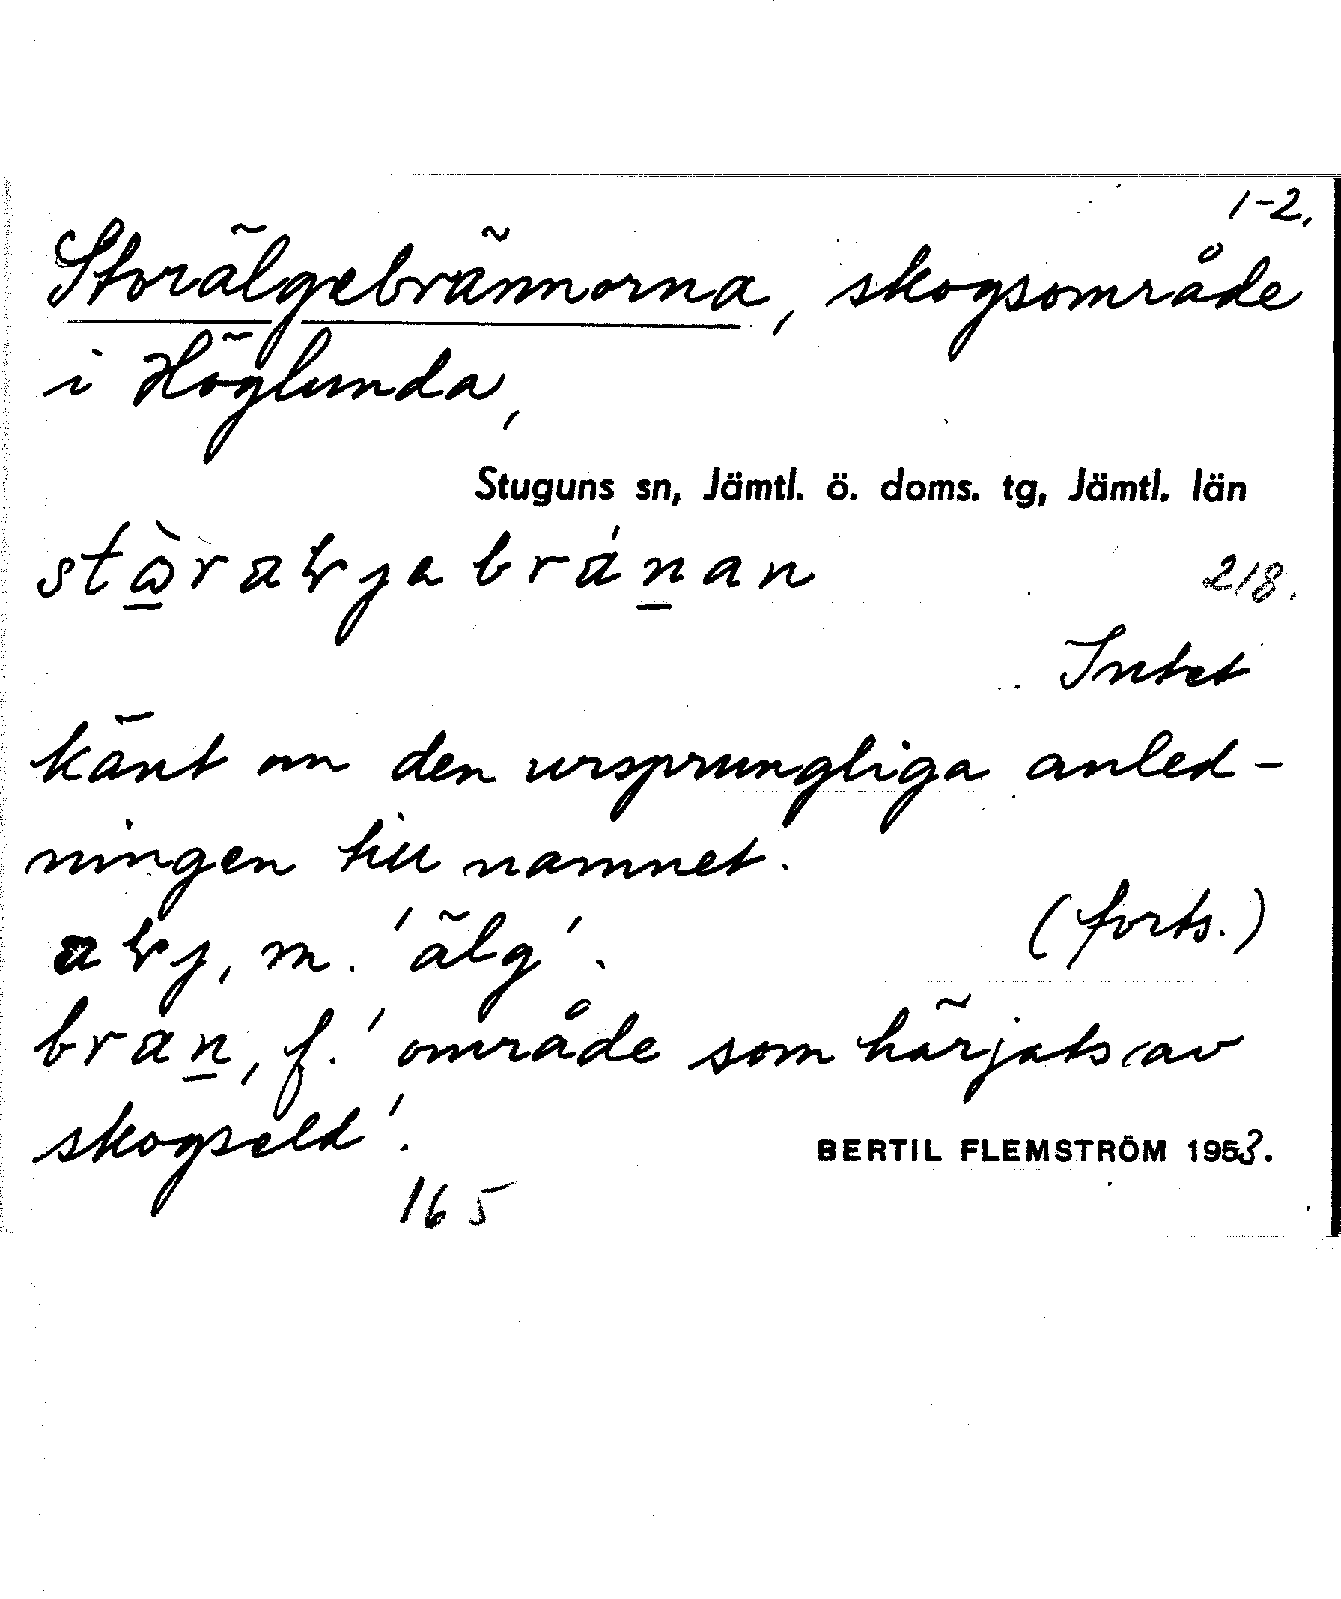 1-2.
Storälgebrännorna, skogsområde
i Höglunda,
Stuguns sn, Jämtl. ö. doms. tg, Jämtl. län
218.
Intet
känt om den ursprungliga anled-
ningen till namnet.
(forts.)
m. 'älg'.
bran, f. 'område som härjats av
skogseld'.
BERTIL FLEMSTRÖM 1953.
165